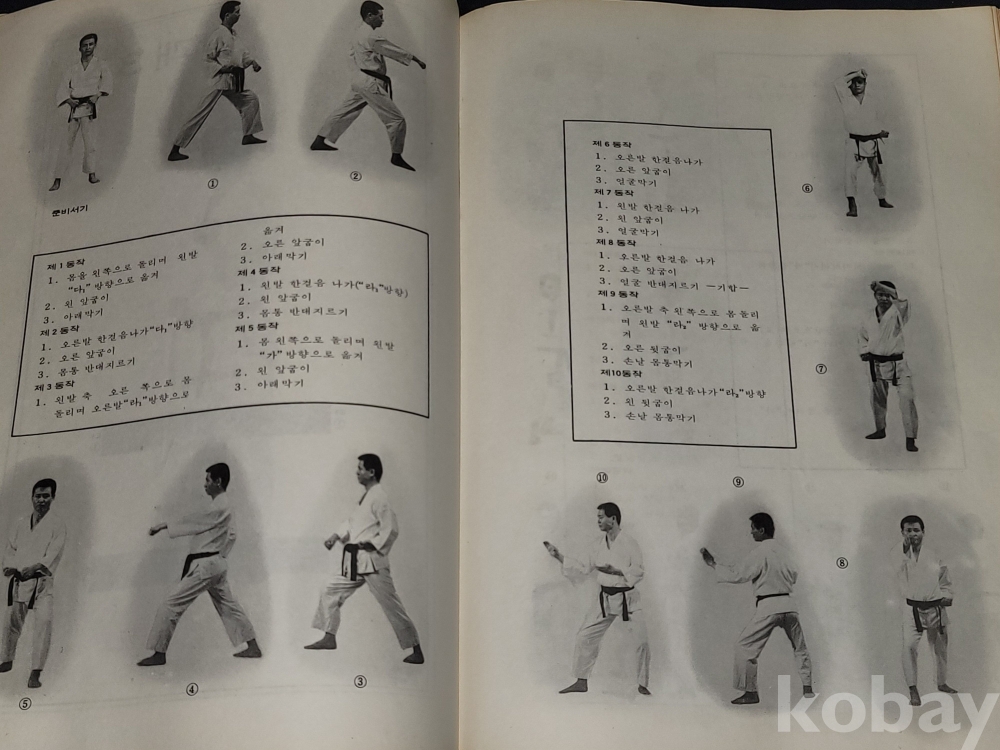 ①
②
준비서기
제1동작
1. 몸을 왼쪽으로 돌리며 왼발
"다₁" 방향으로 옮겨
2. 왼 앞굽이
3. 아래막기
제2동작
1. 오른발 한걸음나가"다₁"방향
2. 오른 앞굽이
3. 몸통 반대지르기
제3동작
1. 왼발 축 오른 쪽으로 몸
돌리며 오른발"라₁"방향으로
옮겨
2. 오른 앞굽이
3. 아래막기
제4동작
1. 왼발 한걸음 나가("라₁"방향)
2. 왼 앞굽이
3. 몸통 반대지르기
제5동작
1. 몸 왼쪽으로 돌리며 왼발
"가"방향으로 옮겨
2. 왼 앞굽이
3. 아래막기
⑤
④
③
제6동작
1. 오른발 한걸음나가
2. 오른 앞굽이
3. 얼굴막기
제7동작
1. 왼발 한걸음 나가
2. 왼 앞굽이
3. 얼굴막기
제8동작
1. 오른발 한걸음 나가
2. 오른 앞굽이
3. 얼굴 반대지르기 —기합—
제9동작
1. 오른발 축 왼쪽으로 몸돌리
며 왼발 "라₂" 방향으로 옮
겨
2. 오른 뒷굽이
3. 손날 몸통막기
제10동작
1. 오른발 한걸음나가"라₂"방향
2. 왼 뒷굽이
3. 손날 몸통막기
⑥
⑦
⑩
⑨
⑧
kobay